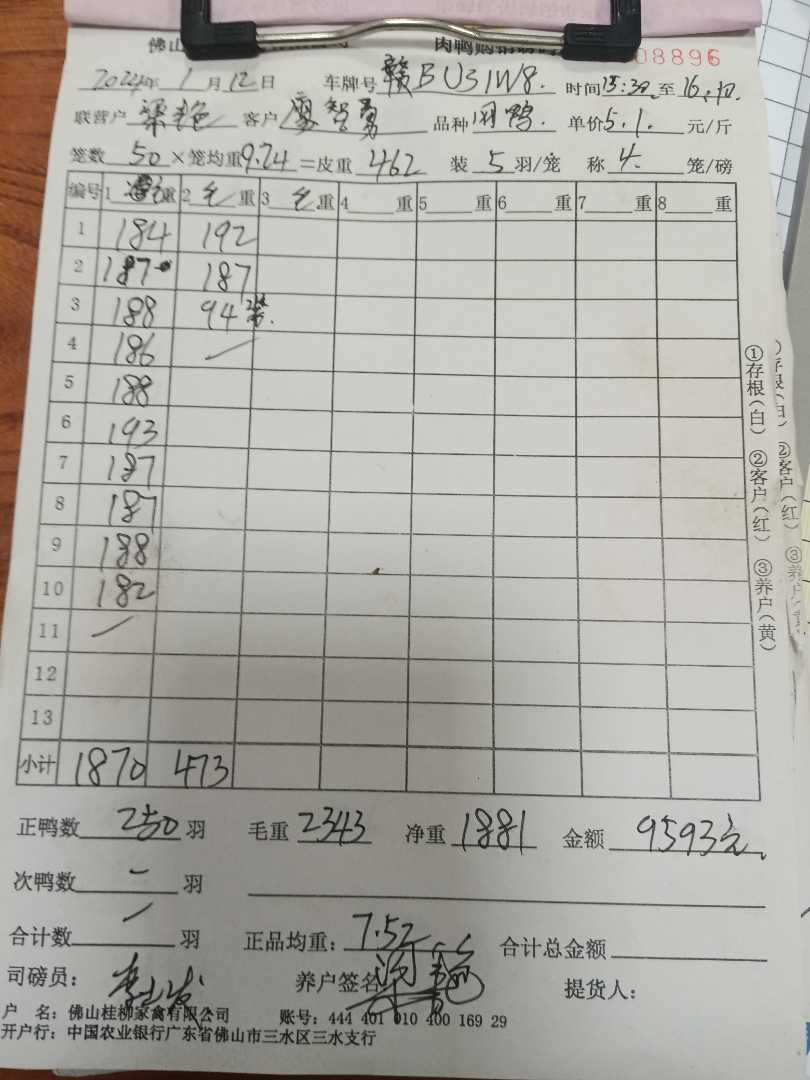 佛山 肉鸭购销磅码 08896
2024年 1月12日 车牌号 赣BU31W8. 时间15:30至16:40.
联营户 梁艳 客户 廖智勇 品种 肉鸭. 单价5.1.元/斤
笼数 50 ×笼均重9.24=皮重 462 装 5 羽/笼 称 4. 笼/磅
编号 1 毛重 2 毛重 3 毛重 4 重 5 重 6 重 7 重 8 重
1 184 192
2 187 187
3 188 94 2笼.
4 186 /
5 188
6 193
7 187
8 187
9 188
10 182
11 /
12
13
小计 1870 473
正鸭数 250 羽 毛重 2343 净重 1881 金额 9593元
次鸭数 - 羽
合计数 / 羽 正品均重: 7.52 合计总金额
司磅员: 养户签名 提货人:
户 名: 佛山桂柳家禽有限公司 账号: 444 401 010 400 169 29
开户行: 中国农业银行广东省佛山市三水区三水支行
①存根(白) ②客户(红) ③养户(黄)